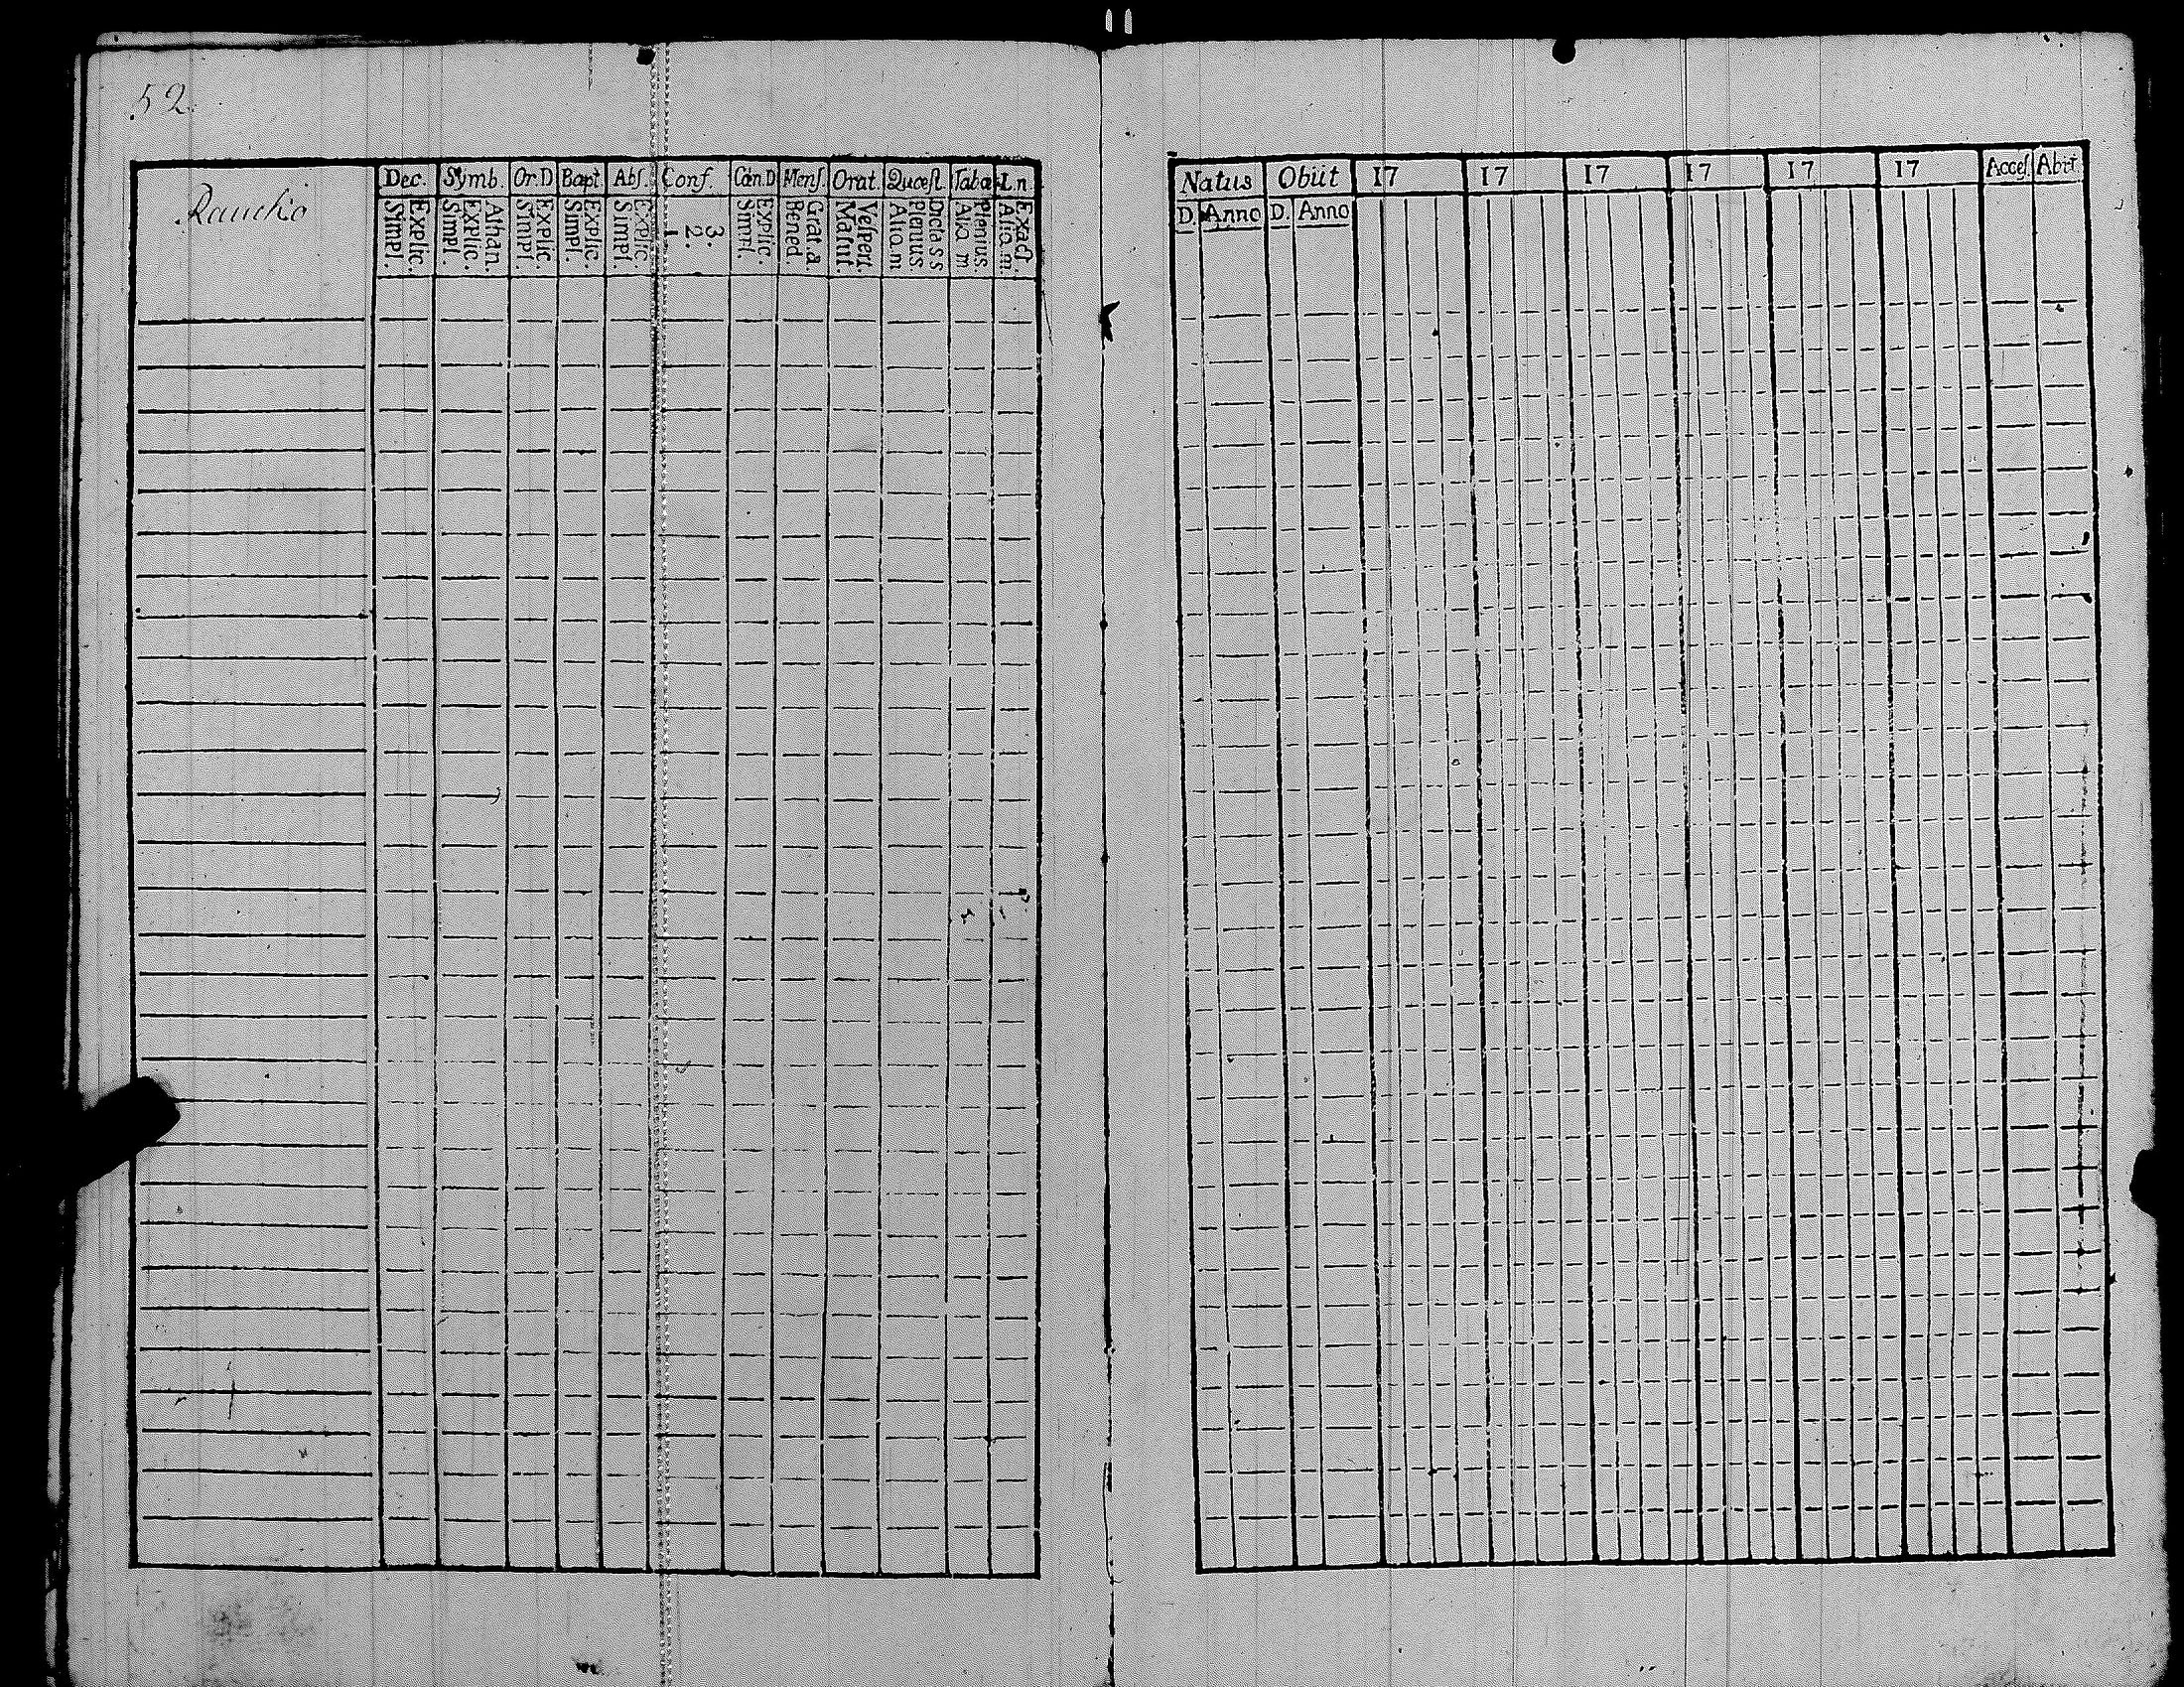 52.
Rauckio
Dec. Symb. Or.D Bapt. Abſ. Conf. Cœn.D Menſ. Orat. Quæſt. Taba In.
Simpl. Explic. Simpl. Explic. Athan. Simpl. Explic. Simpl. Explic. Simpl. Explic. 1. 2. 3. Simpl. Explic. Bened. Grat.a. Matut. Veſpert. Aliq.m Plenius Dicta SS Aliq.m Plenius. Aliq.m. Exact.
Natus Obiit 17 17 17 17 17 17 Acceſ. Abiit
D. Anno D. Anno